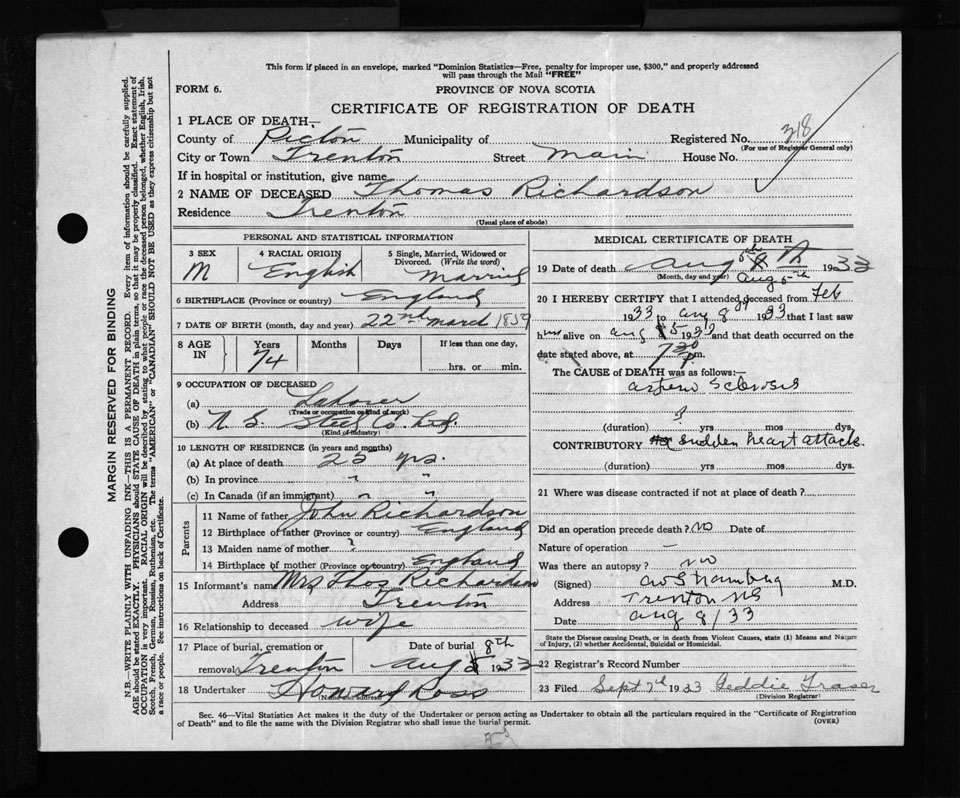 This form if placed in an envelope, marked "Dominion Statistics—Free, penalty for improper use, $300," and properly addressed
will pass through the Mail "FREE"
FORM 6.
PROVINCE OF NOVA SCOTIA
CERTIFICATE OF REGISTRATION OF DEATH
1 PLACE OF DEATH—
County of Pictou Municipality of Registered No. 318
(For use of Registrar General only)
City or Town Trenton Street Main House No.
If in hospital or institution, give name
2 NAME OF DECEASED Thomas Richardson
Residence Trenton
(Usual place of abode)
PERSONAL AND STATISTICAL INFORMATION
3 SEX 4 RACIAL ORIGIN 5 Single, Married, Widowed or
Divorced. (Write the word)
M English Married
6 BIRTHPLACE (Province or country) England
7 DATE OF BIRTH (month, day and year) 22nd March 1859
8 AGE IN Years Months Days If less than one day,
74 hrs. or min.
9 OCCUPATION OF DECEASED
(a) Laborer
(Trade or occupation or kind of work)
(b) N. S. Steel Co. Ltd.
(Kind of industry)
10 LENGTH OF RESIDENCE (in years and months)
(a) At place of death 25 yrs.
(b) In province " "
(c) In Canada (if an immigrant) " "
Parents
11 Name of father John Richardson
12 Birthplace of father (Province or country) England
13 Maiden name of mother ?
14 Birthplace of mother (Province or country) England
15 Informant's name Mrs Thos Richardson
Address Trenton
16 Relationship to deceased wife
17 Place of burial, cremation or Date of burial 8th
removal Trenton Aug 1933
18 Undertaker Howard Ross
(Name and address)
MEDICAL CERTIFICATE OF DEATH
19 Date of death Aug 5th 1933
(Month, day and year) Aug 5th
20 I HEREBY CERTIFY that I attended deceased from Feb
1933 to Aug 8 1933 that I last saw
him alive on Aug 5 1933 and that death occurred on the
date stated above, at 7 30 p.m.
The CAUSE of DEATH was as follows:—
Sclerosis
?
(duration) yrs mos dys.
CONTRIBUTORY Sudden heart attack.
(duration) yrs mos dys.
21 Where was disease contracted if not at place of death ?
Did an operation precede death? NO Date of
Nature of operation —
Was there an autopsy ? no
(Signed) M.D.
Address Trenton NS
Date Aug 8/33
State the Disease causing Death, or in death from Violent Causes, state (1) Means and Nature
of Injury, (2) whether Accidental, Suicidal or Homicidal.
22 Registrar's Record Number
23 Filed Sept 7th 1933 Geddie Fraser
(Division Registrar)
Sec. 46—Vital Statistics Act makes it the duty of the Undertaker or person acting as Undertaker to obtain all the particulars required in the "Certificate of Registration
of Death" and to file the same with the Division Registrar who shall issue the burial permit.
(OVER)
MARGIN RESERVED FOR BINDING
N.B.—WRITE PLAINLY WITH UNFADING INK—THIS IS A PERMANENT RECORD. Every item of information should be carefully supplied.
AGE should be stated EXACTLY. PHYSICIANS should STATE CAUSE OF DEATH in plain terms, so that it may be properly classified. Exact statement of
OCCUPATION is very important. RACIAL ORIGIN will be described by stating to what people or race the deceased person belonged, whether English, Irish,
Scotch, French, German, Russian, Ruthenian, etc. The terms "AMERICAN" or "CANADIAN" SHOULD NOT BE USED as they express citizenship but not
a race or people. See instructions on back of Certificate.